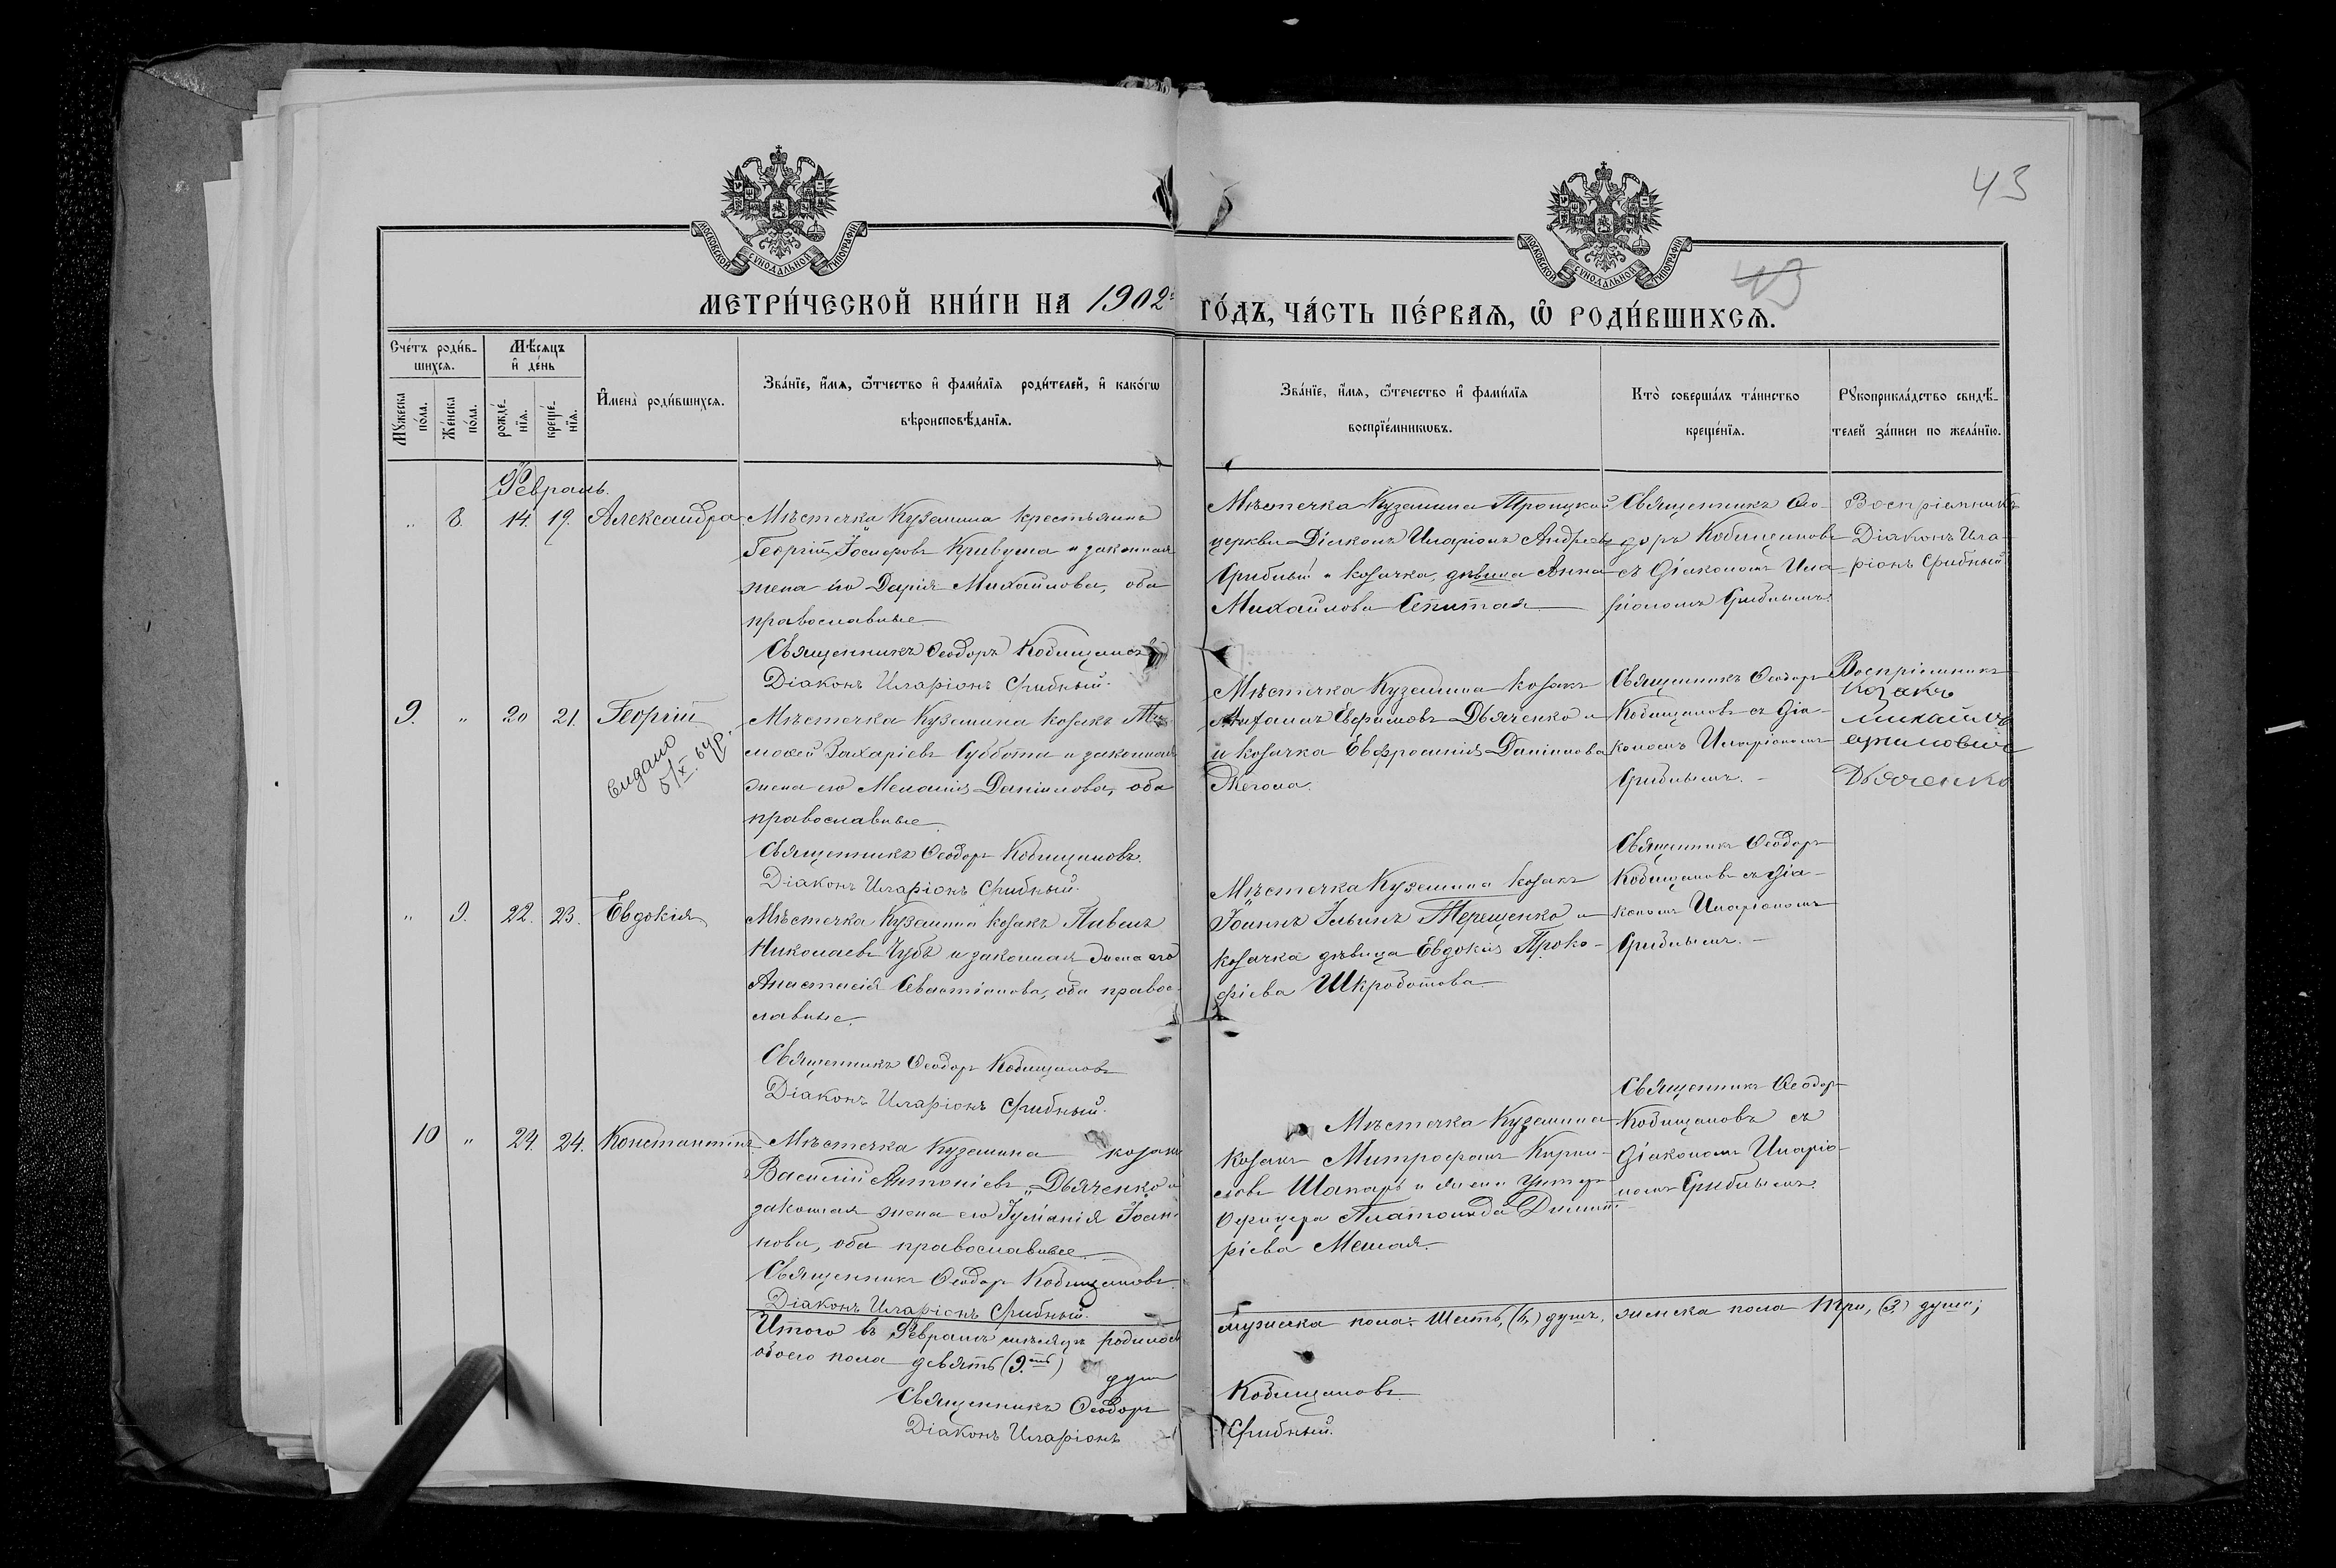 43
43
МОСКОВСКОЙ СѴНОДАЛЬНОЙ ТИПОГРАФІИ
МОСКОВСКОЙ СѴНОДАЛЬНОЙ ТИПОГРАФІИ
МЕТРИ́ЧЕСКОЙ КНИ́ГИ НА 1902 ГО́ДЪ, ЧА́СТЬ ПЕ́РВАѦ, Ѡ҆ РОДИ́ВШИХСѦ.
Сче́тъ роди́в-
шихсѧ.
Мѣ́сѧцъ
и҆ де́нь
Мꙋ́жеска
по́ла.
Же́нска
по́ла.
рожде́-
нїѧ.
креще́-
нїѧ.
И҆мена̀ роди́вшихсѧ.
Зва́нїе, и҆́мѧ, ѻ҆́тчество и҆ фами́лїѧ роди́телей, и҆ како́гѡ
вѣроисповѣ́данїѧ.
Зва́нїе, и҆́мѧ, ѻ҆́течество и҆ фами́лїѧ
воспрїе́мникѡвъ.
Кто̀ соверша́лъ та́инство
креще́нїѧ.
Рꙋкоприкла́дство свидѣ́-
телей за́писи по жела́нїю.
Февраль.
" 8. 14. 19. Александра
Мѣстечка Куземина крестьянинъ
Георгій Іосифовъ Кривуша и законная
жена его Дарія Михайлова, оба
православные
Священникъ Ѳеодоръ Кобищановъ
Діаконъ Иларіонъ Срибный.
Мѣстечка Куземина Троицкой
церкви Діаконъ Иларіонъ Андреевъ
Срибный и козачка, дѣвица Анна
Михайлова
Священникъ Ѳео-
доръ Кобищановъ
съ Діакономъ Ила-
ріономъ Срибнымъ.
Воспріемникъ
Діаконъ Ила-
ріонъ Срибный
9. " 20 21. Георгій
видано
5/X. 64р.
Мѣстечка Куземина козакъ Ти-
мофей Захаріевъ Суббота и законная
жена его Меланія Даніилова, оба
православные
Священникъ Ѳеодоръ Кобищановъ.
Діаконъ Иларіонъ Срибный.
Мѣстечка Куземина козакъ
Евфимовъ Дьяченко и
и козачка Евфросинія Даніилова
Священникъ Ѳеодоръ
Кобищановъ съ Діа-
кономъ Иларіономъ
Срибнымъ.
Воспріемникъ
козакъ
Дьяченко
" 9. 22. 23. Евдокія
Мѣстечка Куземина козакъ Павелъ
Николаевъ Чубъ и законная жена его
Анастасія Севастіанова, оба правос-
лавные.
Священникъ Ѳеодоръ Кобищановъ
Діаконъ Иларіонъ Срибный.
Мѣстечка Куземина козакъ
Іоаннъ Ильинъ Терещенко и
козачка дѣвица Евдокія Проко-
фіева Шкроботова
Священникъ Ѳеодоръ
Кобищановъ съ Діа-
кономъ Иларіономъ
Срибнымъ.
10 " 24. 24. Константинъ
Мѣстечка Куземина козакъ
Василій Антоніевъ Дьяченко и
законная жена его Іуліанія Іоан-
нова, оба православные.
Священникъ Ѳеодоръ Кобищановъ
Діаконъ Иларіонъ Срибный.
Мѣстечка Куземина
козакъ Митрофанъ Кирил-
ловъ Шапарь и жена Унтеръ
Офицера Димит-
ріева
Священникъ Ѳеодоръ
Кобищановъ съ
Діакономъ Иларіо-
номъ Срибнымъ.
Итого въ Февралѣ мѣсяцѣ родилось
обоего пола девять (9.) душъ
мужеска пола: шесть, (6,) душъ, женска пола три, (3.) души;
Священникъ Ѳеодоръ Кобищановъ
Діаконъ Иларіонъ Срибный.